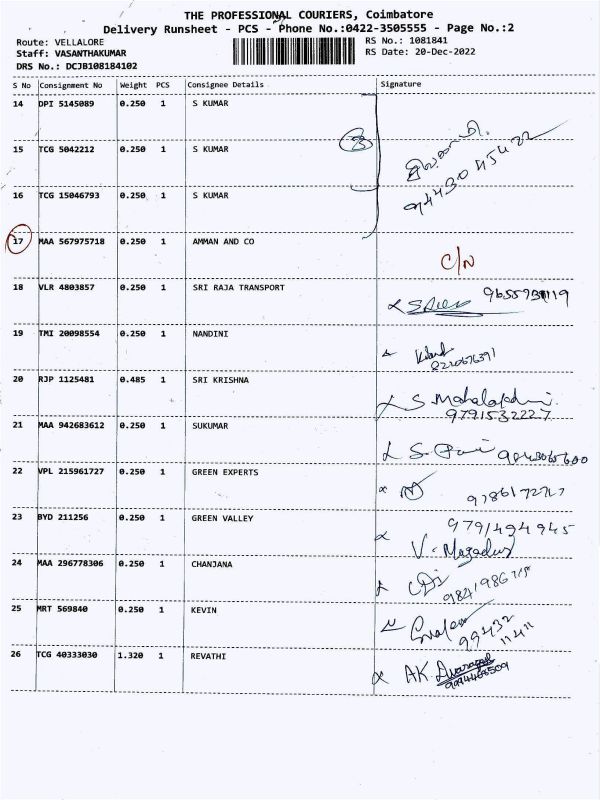 THE PROFESSIONAL COURIERS, Coimbatore
Delivery Runsheet - PCS - Phone No.:0422-3505555 - Page No.:2
Route: VELLALORE
RS No.: 1081841
Staff: VASANTHAKUMAR
RS Date: 20-Dec-2022
DRS No.: DCJB108184102
S No Consignment No Weight PCS Consignee Details Signature
14 DPI 5145089 0.250 1 S KUMAR
15 TCG 5042212 0.250 1 S KUMAR 3
16 TCG 15046793 0.250 1 S KUMAR
94430 45422
17 MAA 567975718 0.250 1 AMMAN AND CO C/N
18 VLR 4803857 0.250 1 SRI RAJA TRANSPORT
19 TMI 20098554 0.250 1 NANDINI
20 RJP 1125481 0.485 1 SRI KRISHNA S.
9791532227
21 MAA 942683612 0.250 1 SUKUMAR S.
22 VPL 215961727 0.250 1 GREEN EXPERTS
23 BYD 211256 0.250 1 GREEN VALLEY 9791494945
V.
24 MAA 296778306 0.250 1 CHANJANA
25 MRT 569840 0.250 1 KEVIN
99432
11411
26 TCG 40333030 1.320 1 REVATHI AK